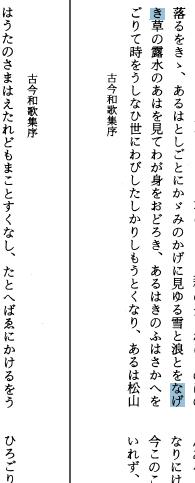 落るをきゝ、あるはとしごとにかゞみのかげに見ゆる雪と浪とをなげ
き草の露水のあはを見てわが身をおどろき、あるはきのふはさかへを
ごりて時をうしなひ世にわびしたしかりしもうとくなり、あるは松山
古今和歌集序
なりにけ
今このこ
いれず、
古今和歌集序
はうたのさまはえたれどもまことすくなし、たとへばゑにかけるをう
ひろごり